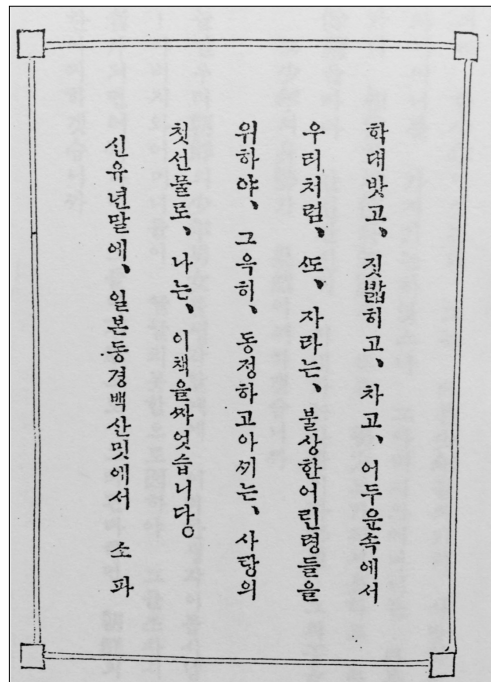 학대밧고、짓밟히고、차고、어두운속에서
우리처럼、ᄯᅩ、자라는、불상한어린령들을
위하야、그윽히、동정하고아ᄭᅵ는、사랑의
첫선물로、나는、이책을ᄶᅡ엇습니다。
신유년말에、일본동경백산밋에서 소파